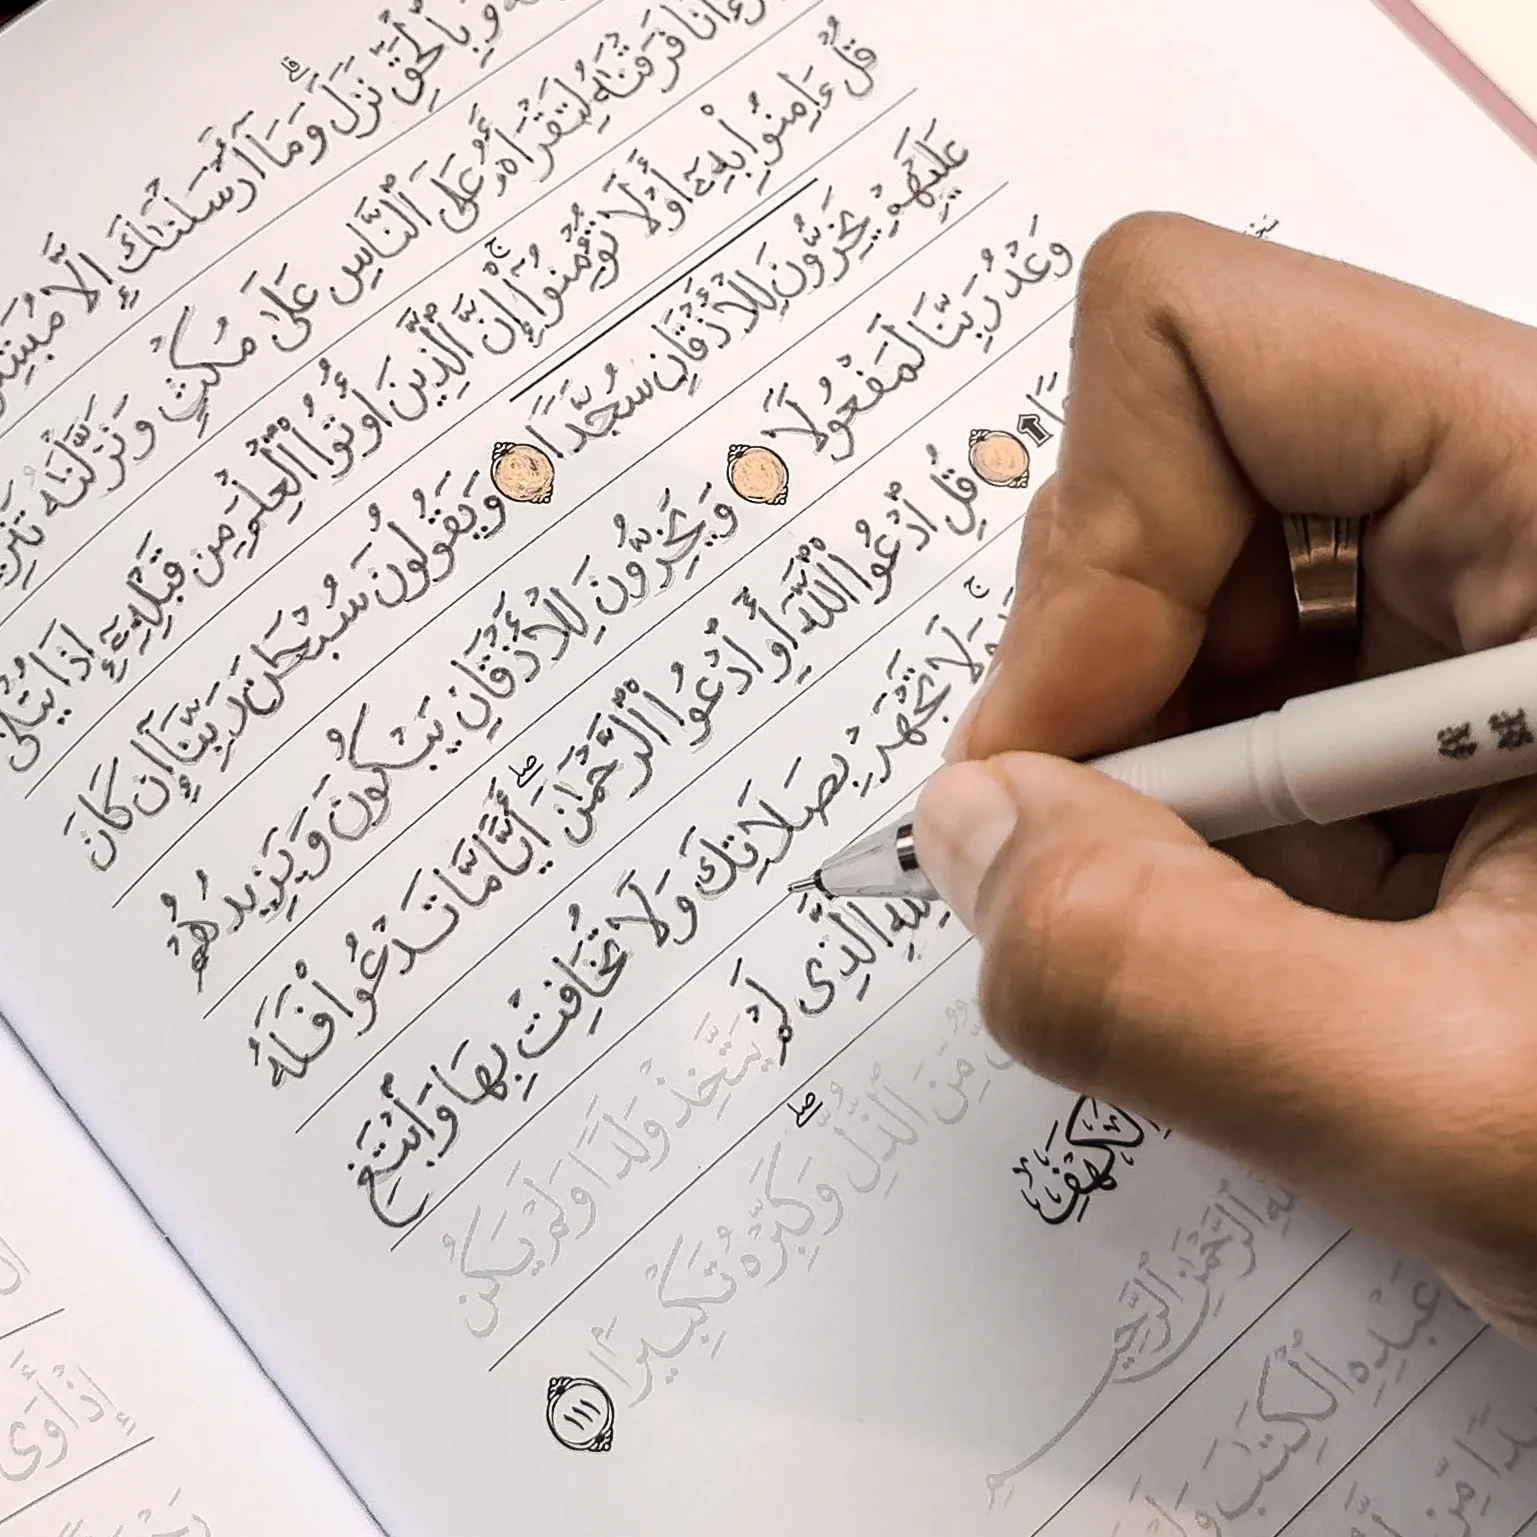 وَبِٱلْحَقِّ نَزَلَ ۗ وَمَآ أَرْسَلْنَٰكَ إِلَّا
فَرَقْنَٰهُ لِتَقْرَأَهُۥ عَلَى ٱلنَّاسِ عَلَىٰ مُكْثٍ وَنَزَّلْنَٰهُ
قُلْ ءَامِنُوا۟ بِهِۦٓ أَوْ لَا تُؤْمِنُوٓا۟ ۚ إِنَّ ٱلَّذِينَ أُوتُوا۟ ٱلْعِلْمَ مِن قَبْلِهِۦٓ إِذَا يُتْلَىٰ
عَلَيْهِمْ يَخِرُّونَ لِلْأَذْقَانِ سُجَّدًا وَيَقُولُونَ سُبْحَٰنَ رَبِّنَآ إِن كَانَ
وَعْدُ رَبِّنَا لَمَفْعُولًا وَيَخِرُّونَ لِلْأَذْقَانِ يَبْكُونَ وَيَزِيدُهُمْ
قُلِ ٱدْعُوا۟ ٱللَّهَ أَوِ ٱدْعُوا۟ ٱلرَّحْمَٰنَ ۖ أَيًّا مَّا تَدْعُوا۟ فَلَهُ
وَلَا تَجْهَرْ بِصَلَاتِكَ وَلَا تُخَافِتْ بِهَا وَٱبْتَغِ
ٱلَّذِى لَمْ يَتَّخِذْ وَلَدًا وَلَمْ يَكُن
مِّنَ ٱلذُّلِّ ۖ وَكَبِّرْهُ تَكْبِيرًا ١١١
ٱلْكَهْفِ
ٱلرَّحْمَٰنِ ٱلرَّحِيمِ
عَبْدِهِ ٱلْكِتَٰبَ
إِذْ أَوَى